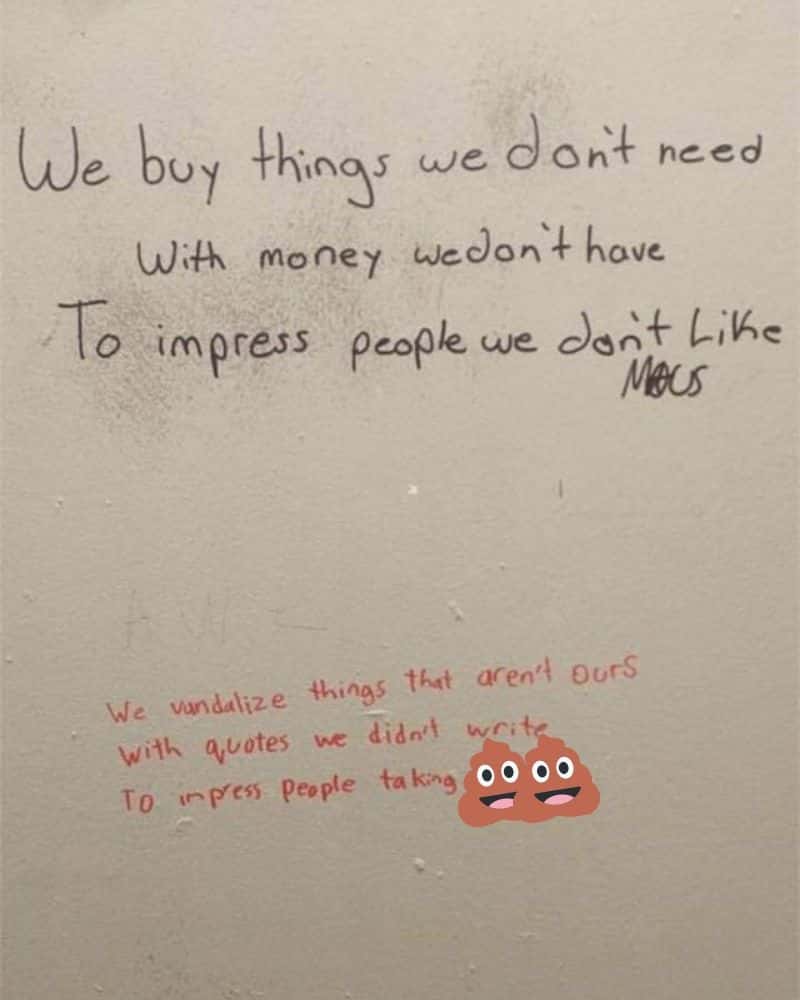 We buy things we don't need
With money we don't have
To impress people we don't Like
We vandalize things that aren't ours
With quotes we didn't write
To impress people taking